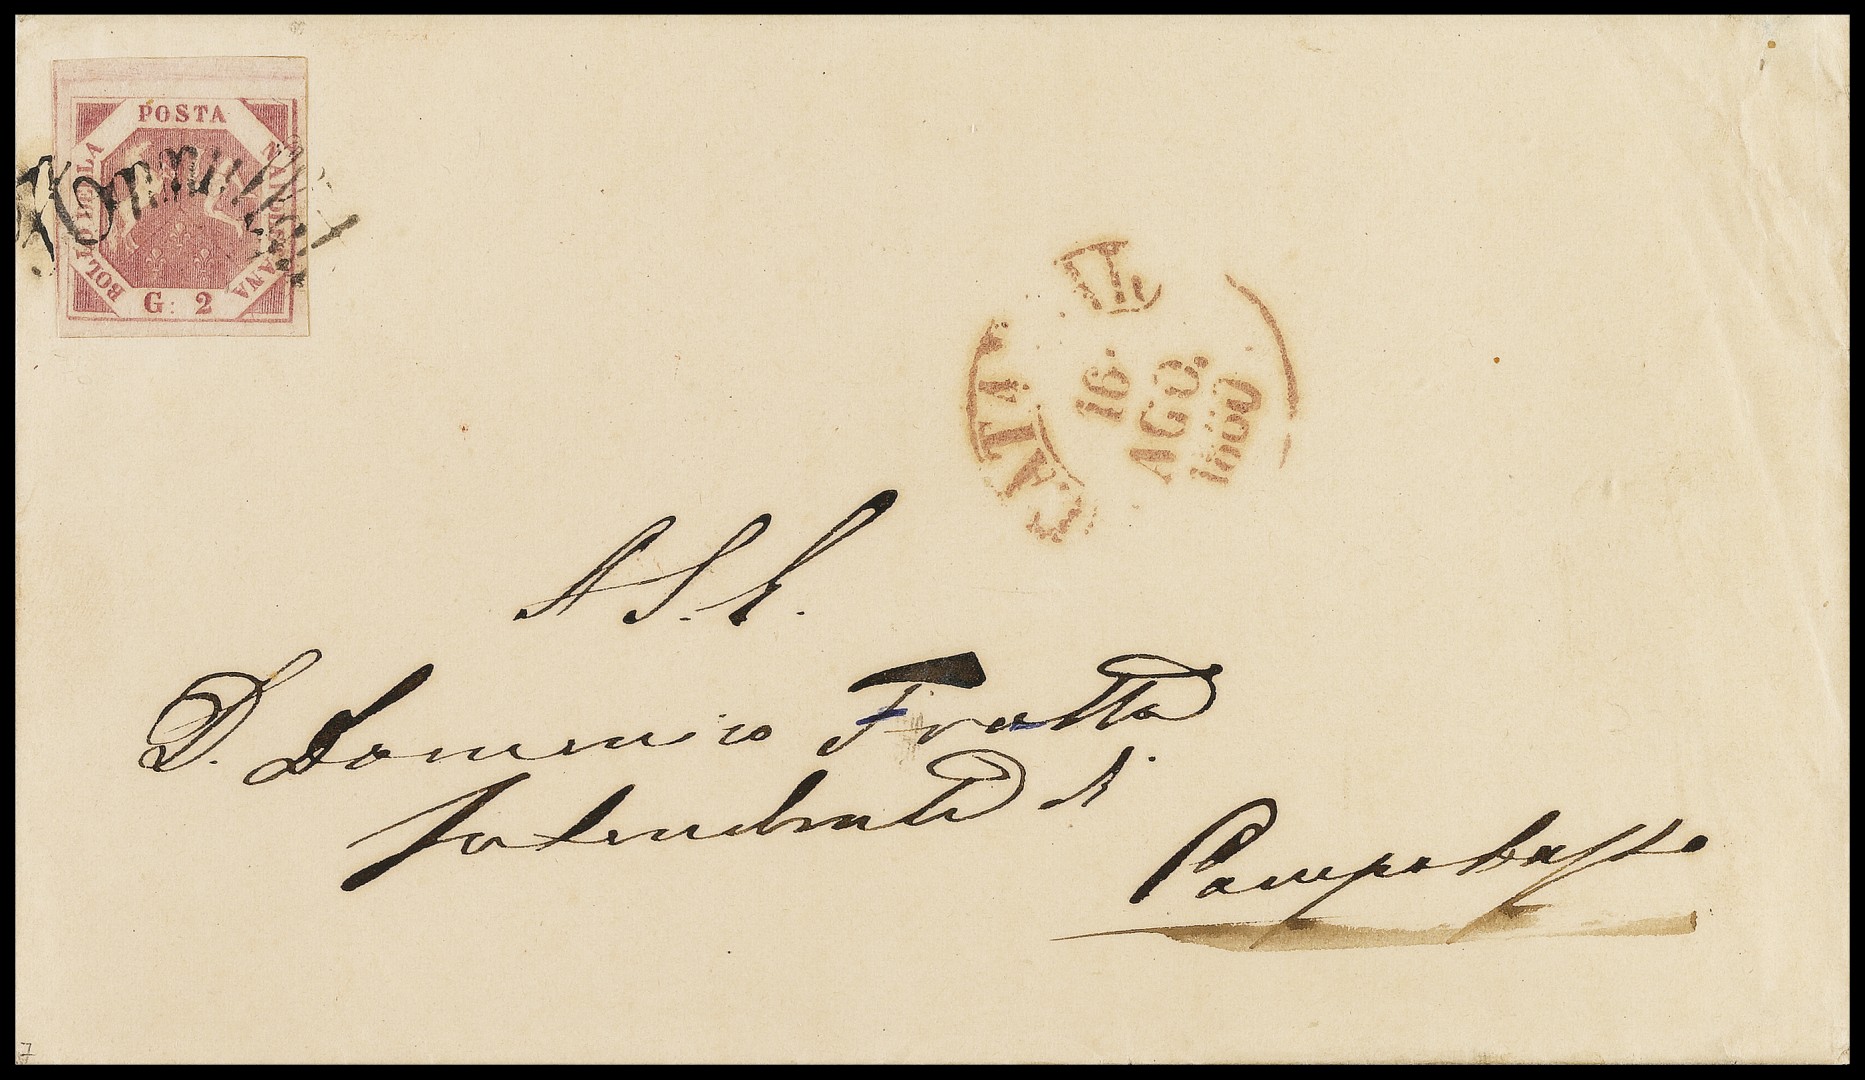 POSTA
BOLLO DELLA
NAPOLETANA
G. 2
Annullato
16
AGO.
1860
A S. E.
D. Domenico Fratta
Intendente di
Campobasso
7